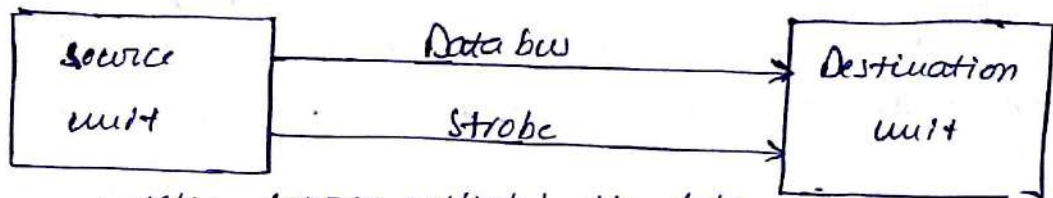 Source
unit
Data bus
Strobe
Destination
unit